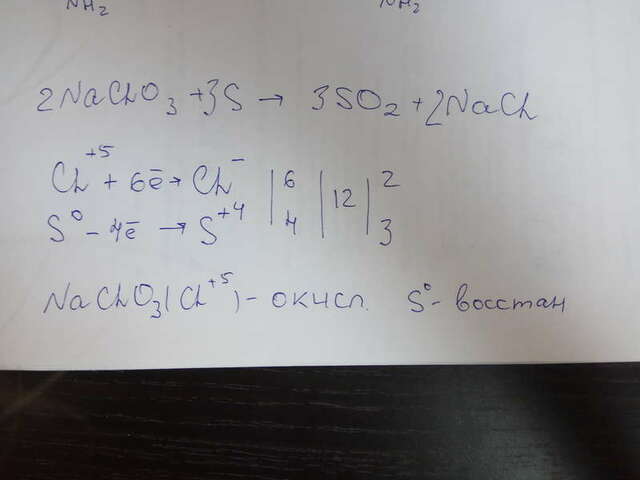 NH₂ NH₂
2NaClO₃ + 3S → 3SO₂ + 2NaCl
Cl⁺⁵ + 6ē → Cl⁻ | 6 | 12 | 2
S⁰ – 4ē → S⁺⁴ | 4 | | 3
NaClO₃(Cl⁺⁵) – окисл. S⁰ – восстан